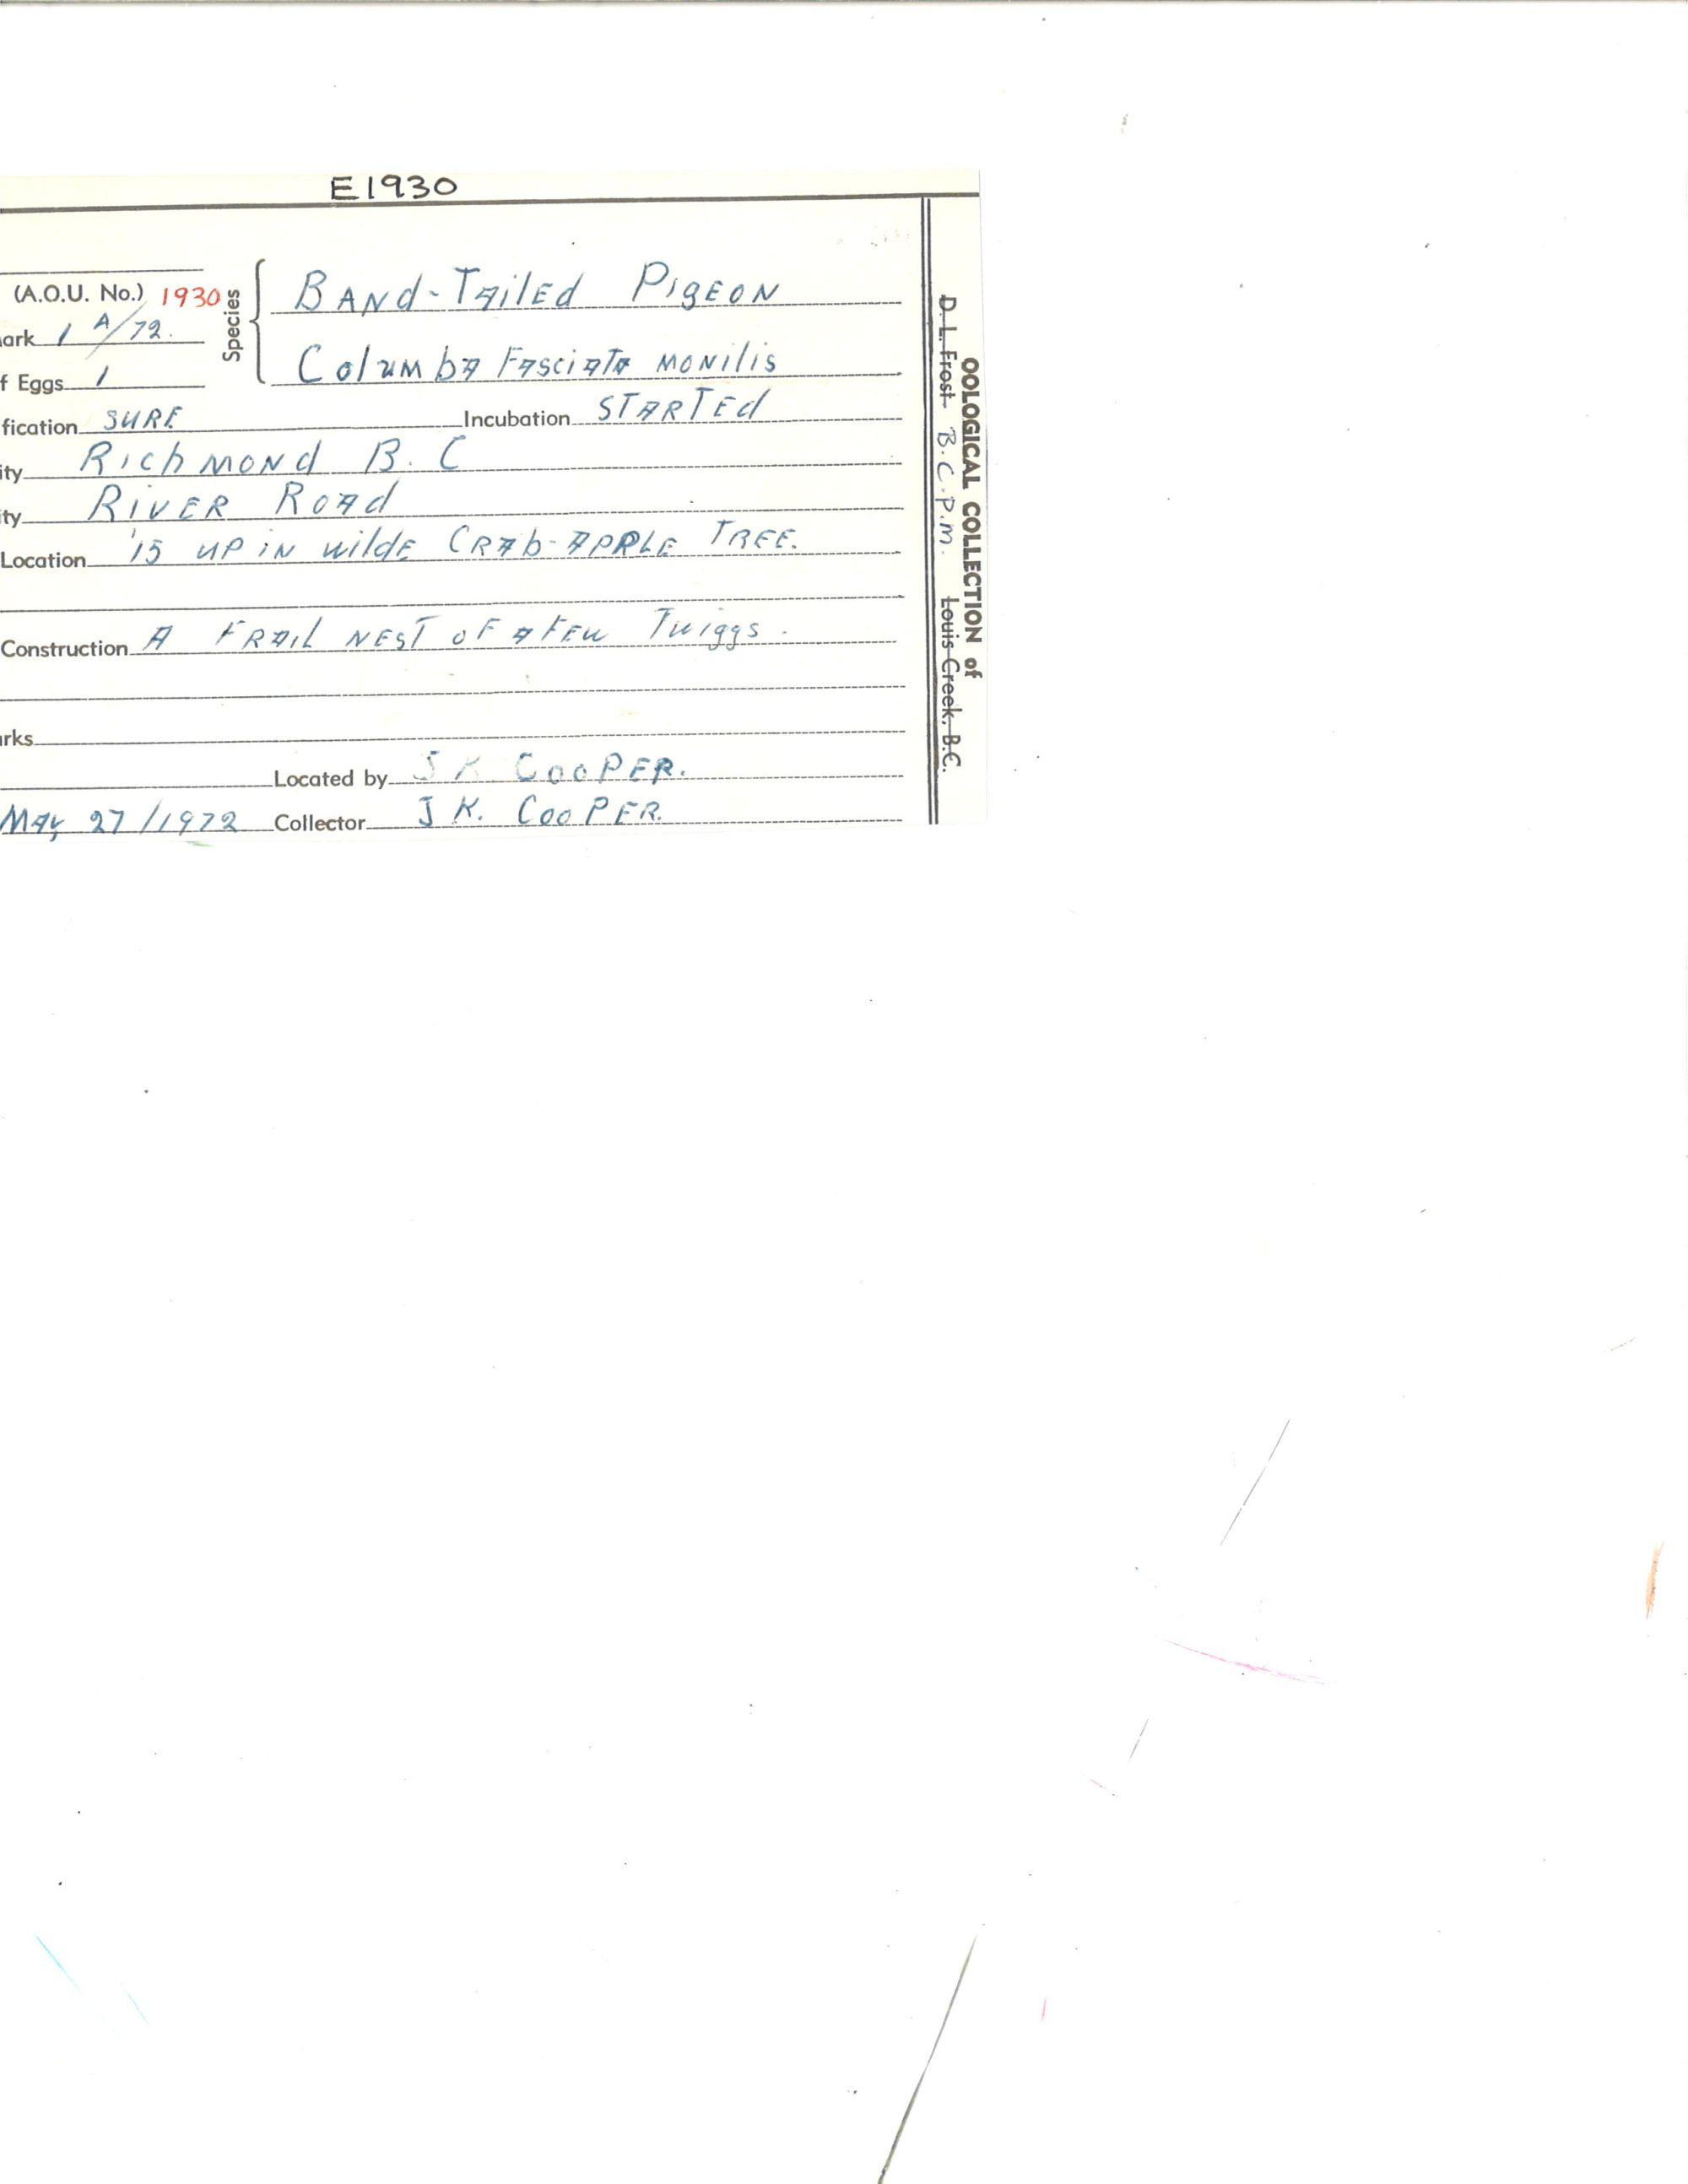 E1930
(A.O.U. No.) 1930
Species
Band-Tailed Pigeon
ark 1 A/72.
Columba Fasciata monilis
f Eggs 1
fication SURE Incubation STARTEd
ity Richmond B. C
ty RIVER Road
Location '15 UP iN wildE CRab-APPLE TREE.
Construction A FRAIL NEST OF A FEW Twiggs.
rks
Located by J K COOPER.
May 27/1972 Collector J K. COOPER.
OOLOGICAL COLLECTION of
D. L. Frost B.C.P.M. Louis Creek, B.C.